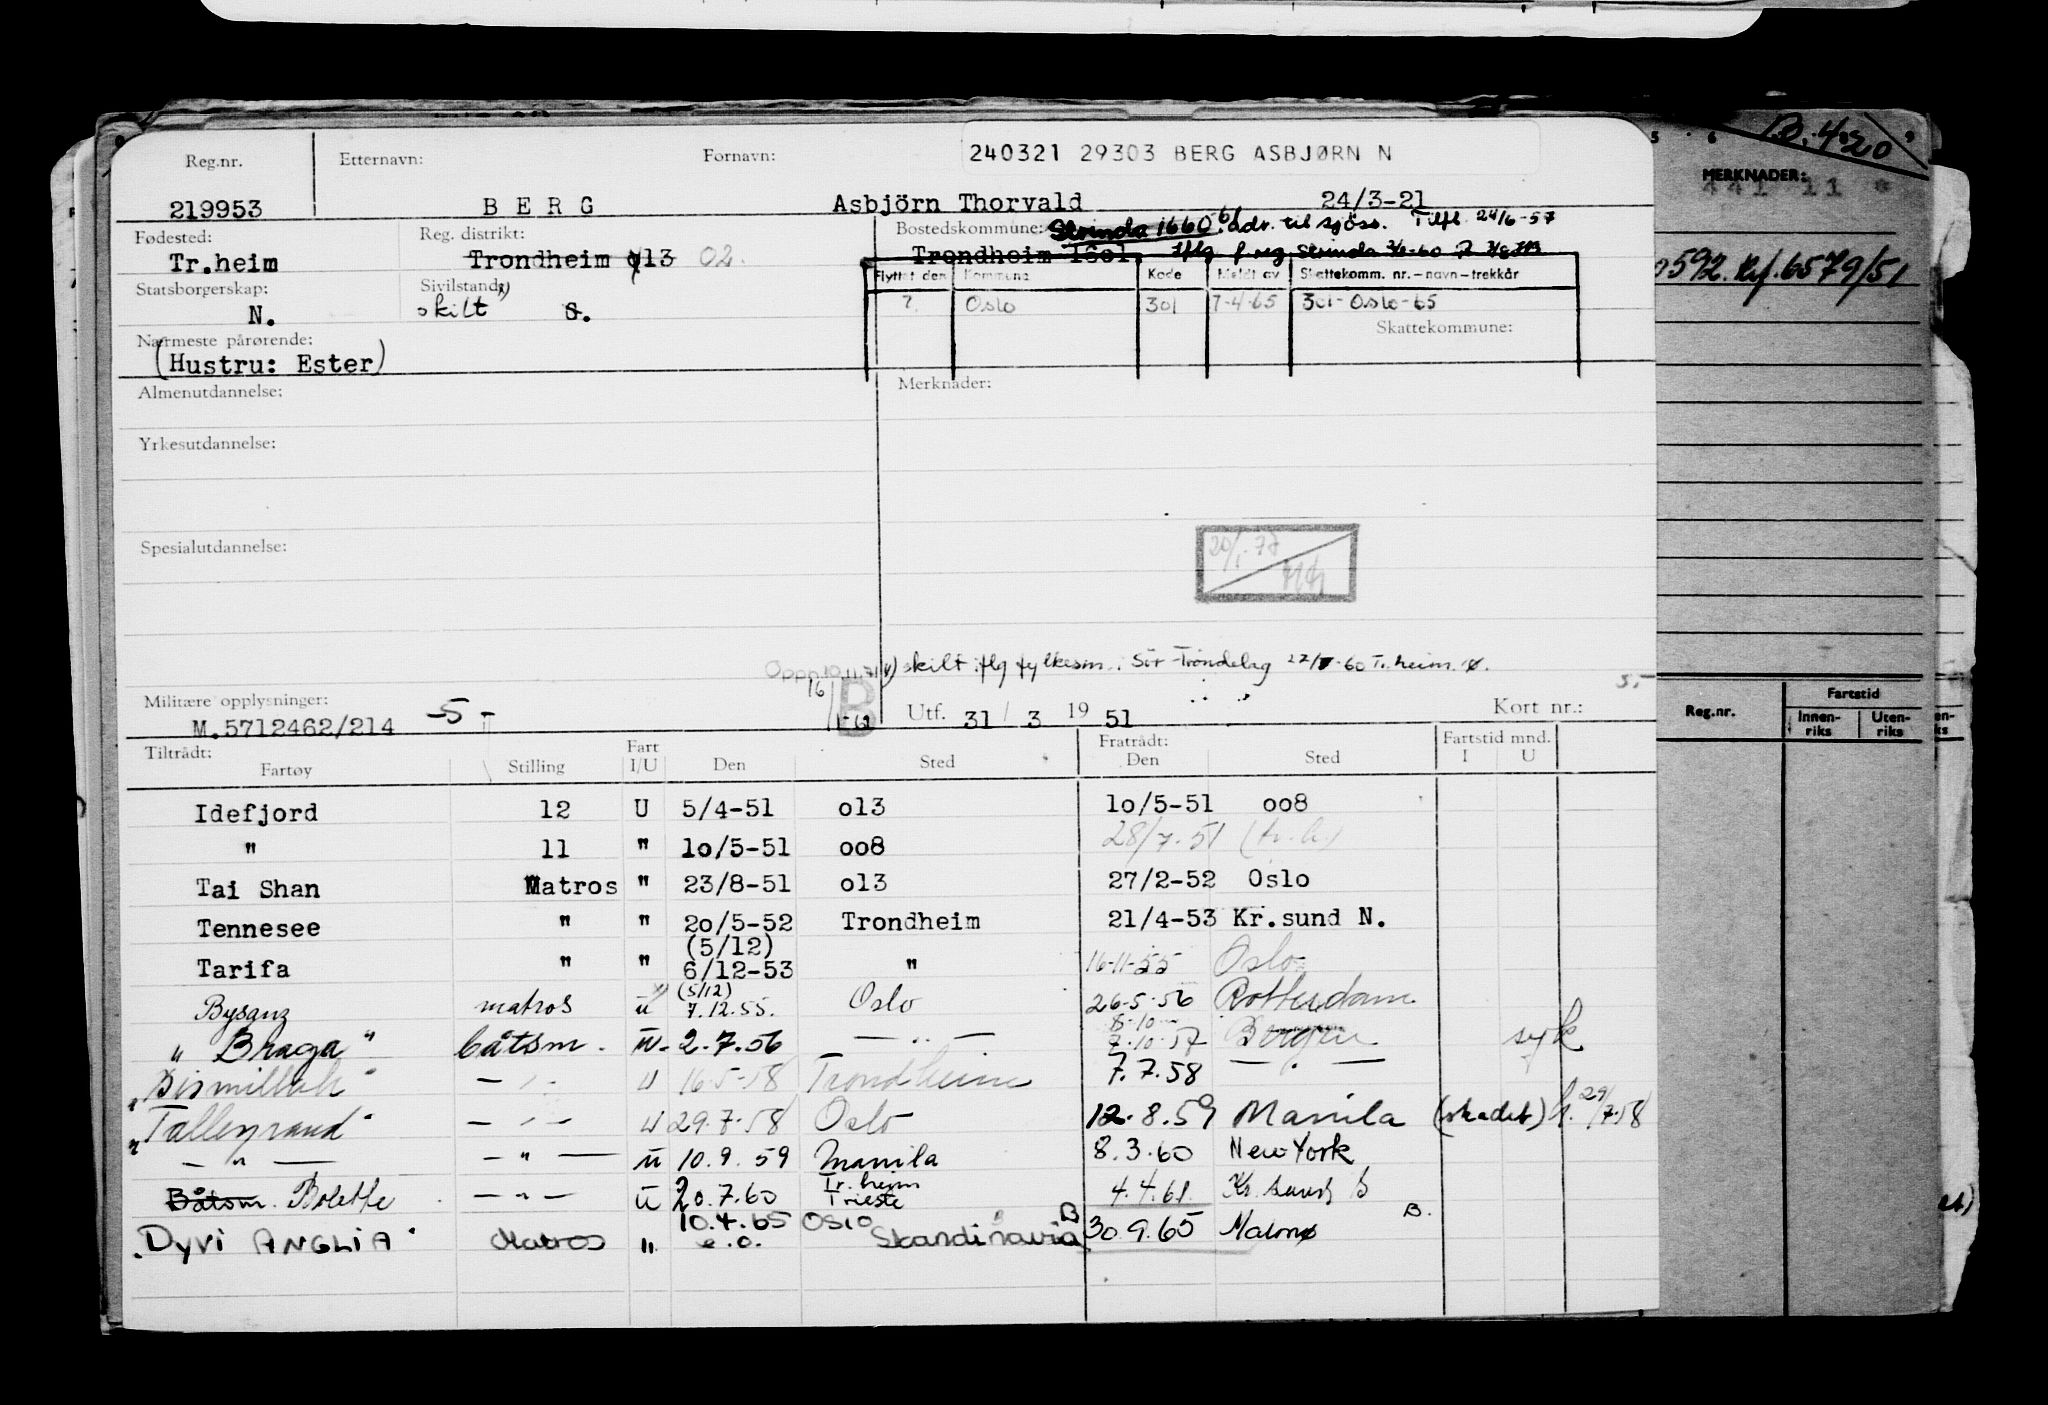 240321 29303 BERG ASBJØRN N
Reg.nr. Etternavn: Fornavn:
219953 BERG Asbjörn Thorvald 24/3-21
Fødested: Reg. distrikt: Bostedskommune: Strinda 1660 adr. til sjöss. Tilfl. 24/6-57
Tr.heim Trondheim 013 02. Trondheim 1601 iflg f. reg. Strinda
Statsborgerskap: Sivilstand: Flyttet den Kommune Kode Meldt av Skattekomm. nr.-navn-trekkår
N. skilt G. ? Oslo 301 7-4-65 301-Oslo-65
Nærmeste pårørende: Skattekommune:
(Hustru: Ester)
Almenutdannelse: Merknader:
Yrkesutdannelse:
Spesialutdannelse:
skilt iflg fylkesm. i Sör-Tröndelag Tr.heim.
Militære opplysninger: Utf. 31/3 1951 Kort nr.:
M.5712462/214 -5-
Tiltrådt: Fart Fratrådt: Fartstid mnd.
Fartøy Stilling I/U Den Sted Den Sted I U
Idefjord 12 U 5/4-51 o13 1o/5-51 oo8
" 11 " 1o/5-51 oo8 28/7-51
Tai Shan Matros " 23/8-51 o13 27/2-52 Oslo
Tennesee " " 2o/5-52 Trondheim 21/4-53 Kr.sund N.
(5/12)
Tarifa " " 6/12-53 " 16-11-55 Oslo
(5/12)
Bysanz matros u 7.12.55. Oslo 26-5-56 Rotterdam
8-10
"Braga" båtsm. u. 2.7.56 — " — 7-10-57 Bergen syk
"Bismillah" — " — u 16-5-58 Trondheim 7.7.58 — " —
"Talleyrand" — " — u 29.7.58 Oslo 12.8.59 Manila (skadet) 29/7-58
— " — — " — u 10.9.59 Manila 8.3.60 New York
Tr.heim
Båtsm. Bolette — " — u 20.7.60 Trieste 4.4.61 Kr. sand S
10.4.65 Oslo B B.
"DYVI ANGLIA" Matros " e.o. Skandinavia 30.9.65 Malmø
B.420
MERKNADER:
441 11
0592. Rf. 6579/51
Reg.nr. Fartstid
Innen-riks Uten-riks